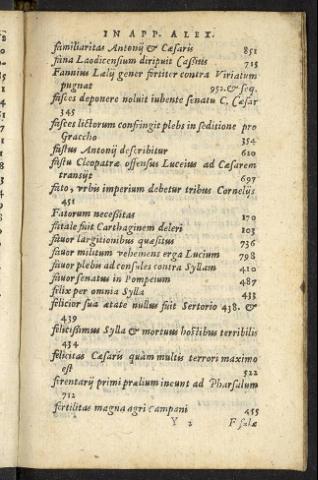 IN APP. ALEX.
familiaritas Antonij & Cæsaris 851
fana Laodicensium diripuit Cassius 725
Fannius Lælij gener fortiter contra Viriatum
pugnat 952. & seq.
fasces deponere noluit iubente senatu C. Cæsar
345
fasces lictorum confringit plebs in seditione pro
Graccho 354
fastus Antonij describitur 610
fastu Cleopatræ offensus Luceius ad Cæsarem
transijt 697
fato, vrbis imperium debetur tribus Cornelijs
451
Fatorum necessitas 170
fatale fuit Carthaginem deleri 103
fauor largitionibus quæsitus 736
fauor militum vehemens erga Lucium 798
fauor plebis ad consules contra Syllam 410
fauor senatus in Pompeium 487
felix per omnia Sylla 433
felicior sua ætate nullus fuit Sertorio 438. &
439
felicissimus Sylla & mortuus hostibus terribilis
434
felicitas Cæsaris quàm multis terrori maximo
est 522
ferentarij primi prælium ineunt ad Pharsalum
712
fertilitas magna agri Campani 455
Y 2 F salæ